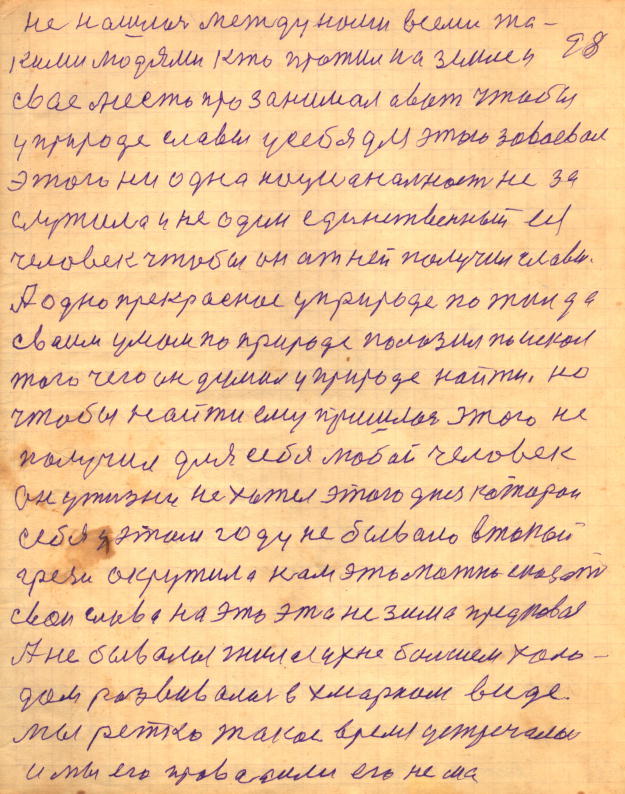 не нашлся между нами всеми та-
кими людями кто прожил на земле и 98
свае место прозанимал а вот чтобы
у природе славы у себя для этого завоевал
этого ни одна нацианалност не за
служила и не один единственный ей
человек чтобы он от ней получил славы.
А одно прекрасное у природе пожил да
своим умом по природе полазил поискал
того чего он думал у природе найти. но
чтобы найти ему пришлос этого не
получил для себя любой человек
он у жизни не хотел этого дня каторой
себя у этом году не бывало в такой
грези окрутила нам это можно сказать
свои слова на это эта не зима
А не бывалая жила ухне болшем холо-
дом развивалас в хмарном виде.
мы ретко такое время устречали
и мы его проважали его не ма